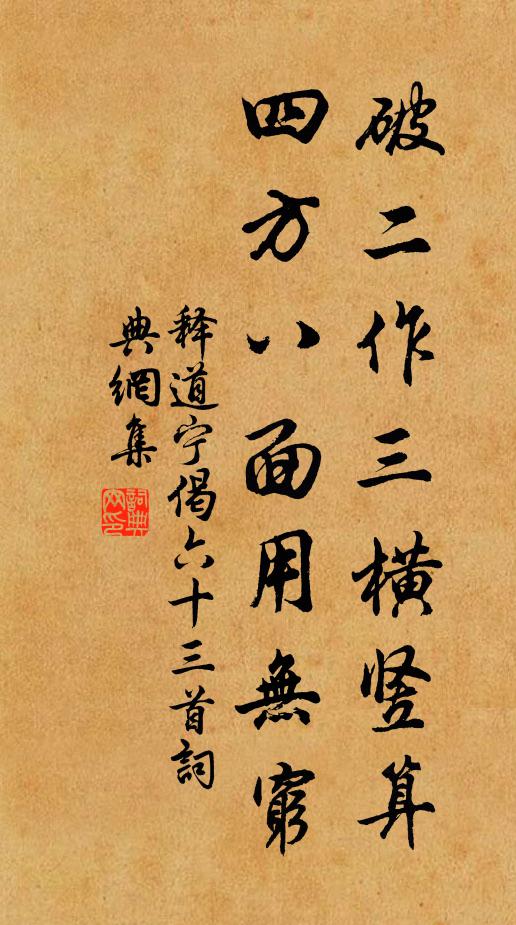 破二作三横竖算
四方八面用無窮
释道宁偈六十三首詞
典網集
詞典
网印